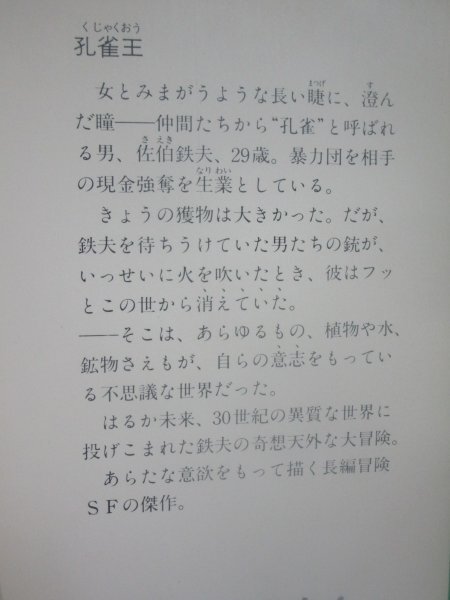 くじゃくおう
孔雀王
女とみまがうような長い睫に、澄ん
だ瞳――仲間たちから“孔雀”と呼ばれ
る男、佐伯鉄夫、29歳。暴力団を相手
の現金強奪を生業としている。
きょうの獲物は大きかった。だが、
鉄夫を待ちうけていた男たちの銃が、
いっせいに火を吹いたとき、彼はフッ
とこの世から消えていた。
――そこは、あらゆるもの、植物や水、
鉱物さえもが、自らの意志をもってい
る不思議な世界だった。
はるか未来、30世紀の異質な世界に
投げこまれた鉄夫の奇想天外な大冒険。
あらたな意欲をもって描く長編冒険
SFの傑作。